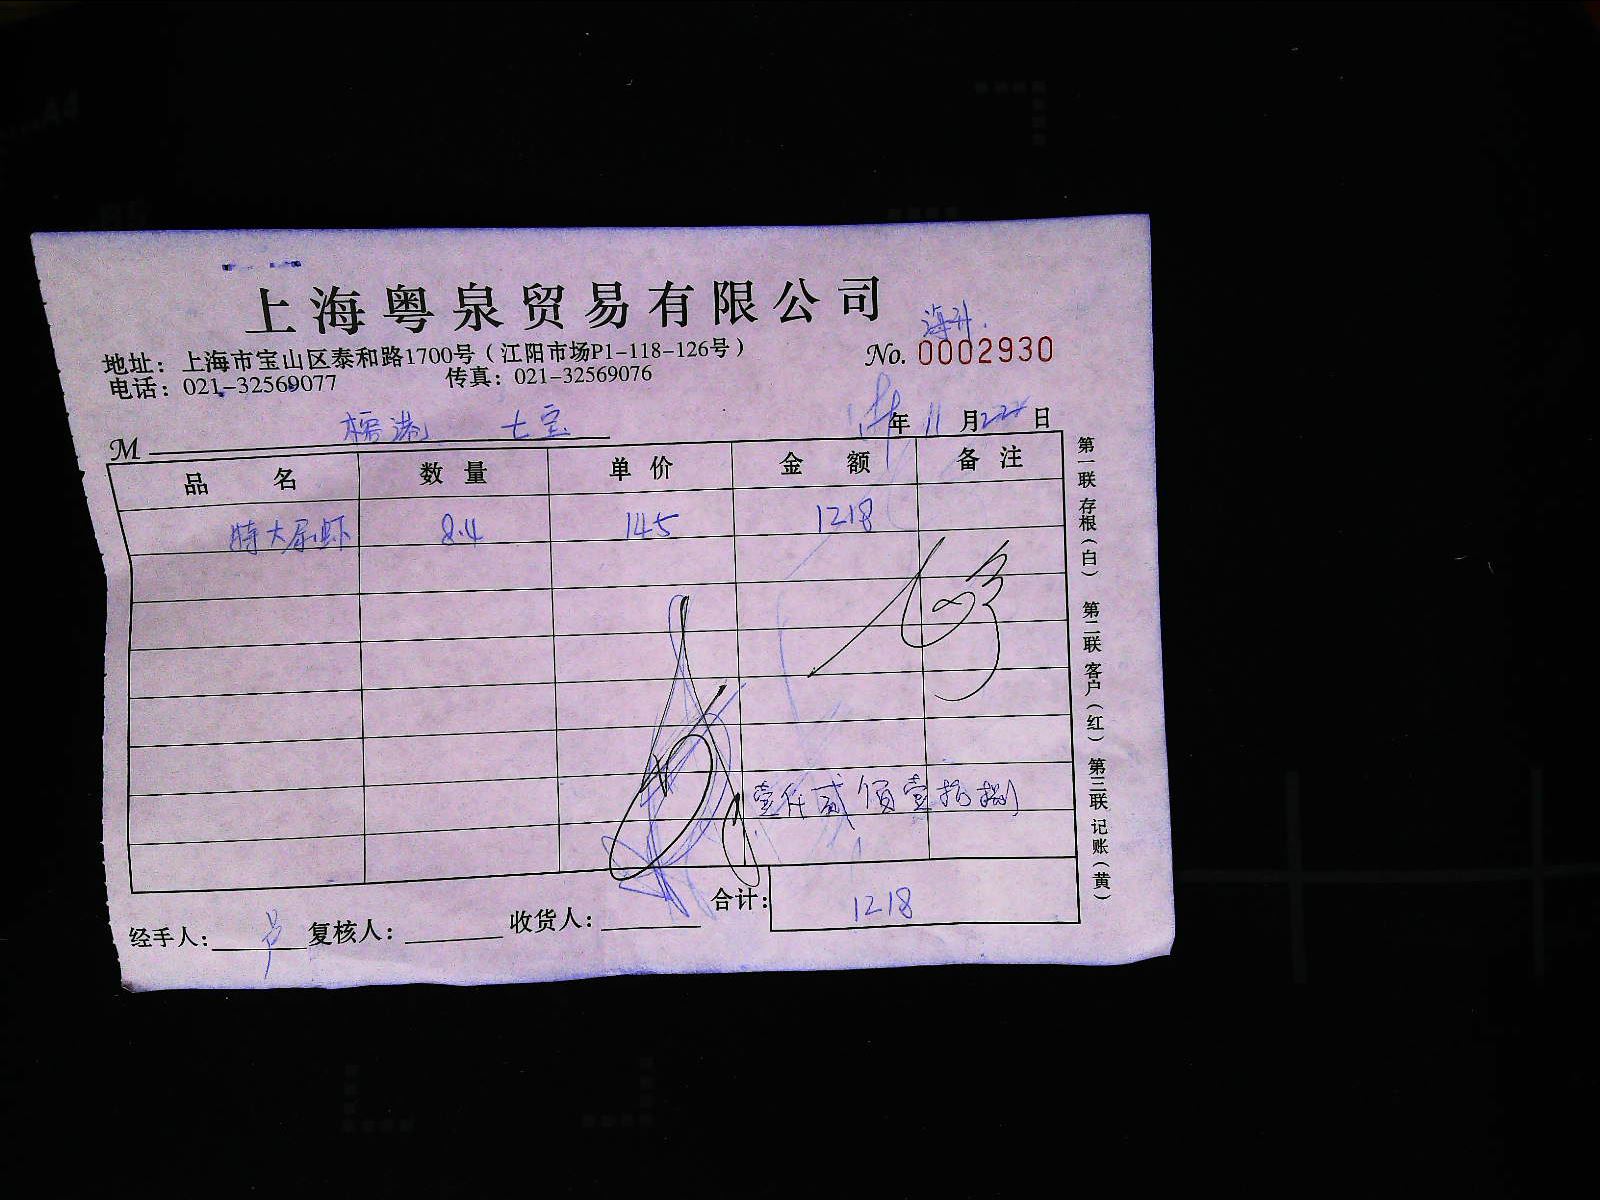 上海粤泉贸易有限公司
海升.
地址：上海市宝山区泰和路1700号（江阳市场P1-118-126号）
No. 0002930
电话：021-32569077 传真：021-32569076
M 港 七宝
年 11 月 日
品名 数量 单价 金额 备注
特大尿虾 8.4 145 1218
壹仟贰佰壹拾捌
合计： 1218
经手人： 复核人： 收货人：
第一联 存根（白） 第二联 客户（红） 第三联 记账（黄）